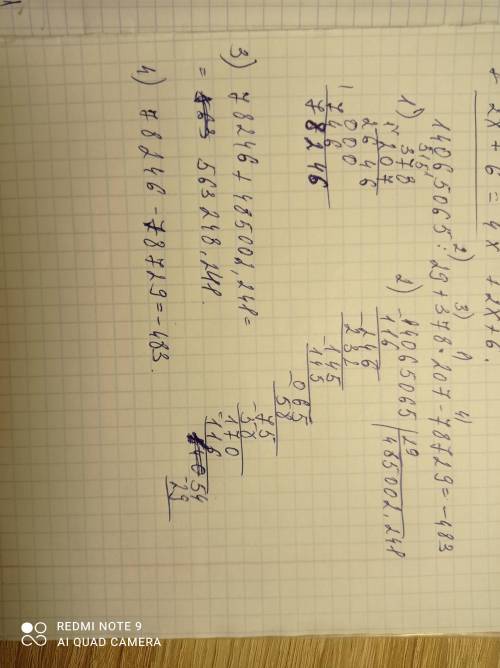 2x + 6 = 4x + 2x + 6.
2) 3) 1) 4)
14065065 : 29 + 378 · 207 - 78729 = -483
1) 378
207
2646
000
746
78246
2) 14065065 | 29
116 | 485002,248
246
232
145
145
065
58
75
58
170
116
54
29
3) 78246 + 485002,248 =
= 563 248,248.
4) 78246 - 78729 = -483.
REDMI NOTE 9
AI QUAD CAMERA